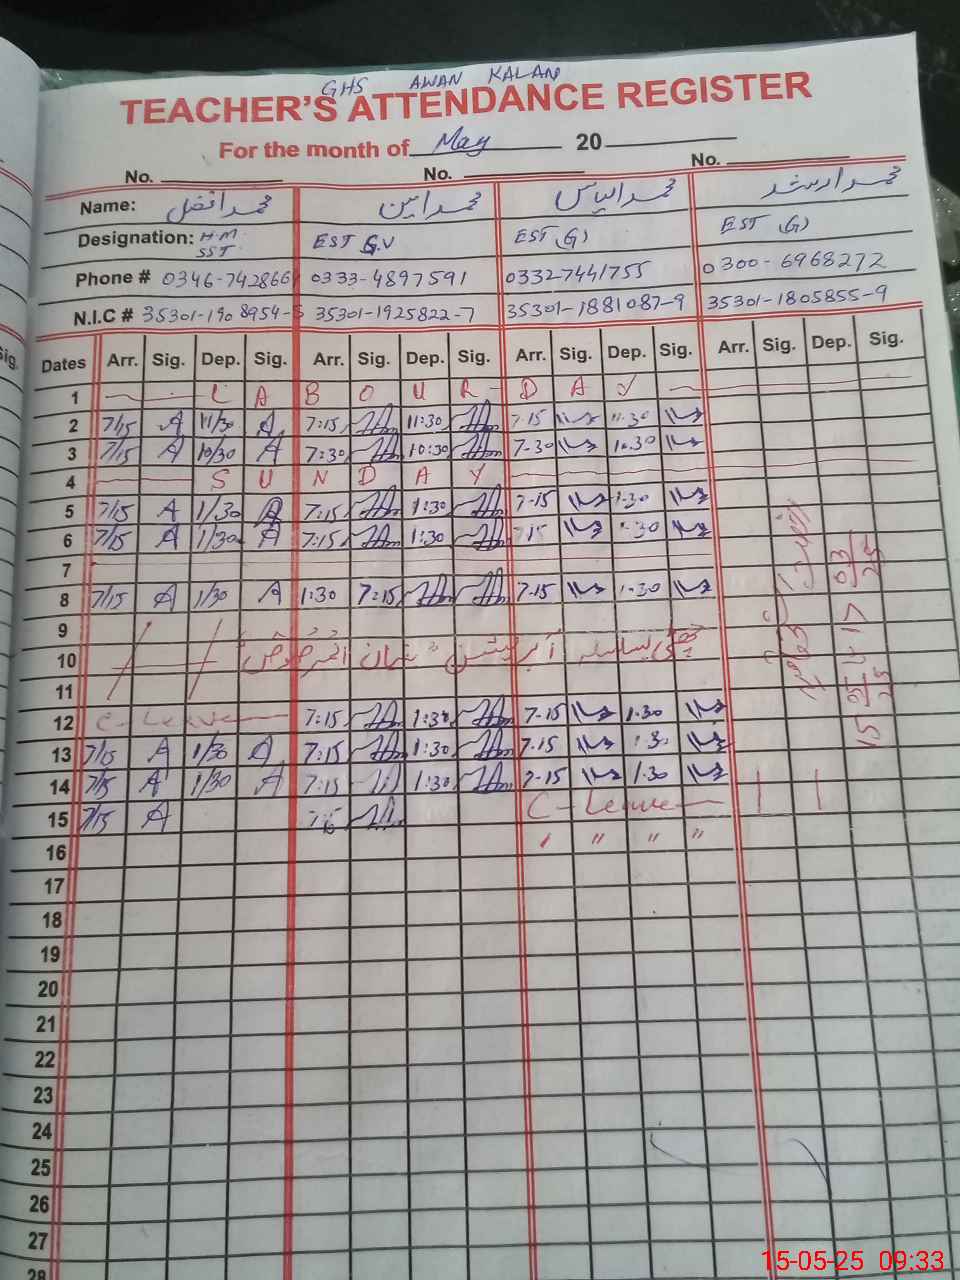 GHS AWAN KALAN
TEACHER'S ATTENDANCE REGISTER
For the month of May 20
No. No. No.
Name: محمد افضل محمد امین محمد الیاس محمد ارشد
Designation: H.M. SST. EST G.V EST (G) EST (G)
Phone # 0346-742866 0333-4897591 0332-7441755 0300-6968272
N.I.C # 35301-1908954-5 35301-1925822-7 35301-1881087-9 35301-1805855-9
Dates Arr. Sig. Dep. Sig. Arr. Sig. Dep. Sig. Arr. Sig. Dep. Sig. Arr. Sig. Dep. Sig.
1 LABOUR-DAY
2 7/15 A 11/30 A 7:15 11:30 7-15 11.30
3 7/15 A 10/30 A 7:30 10:30 7-30 10.30
4 SUNDAY
5 7/15 A 1/30 A 7:15 1:30 7-15 1-30
6 7/15 A 1/30 A 7:15 1:30 7-15 1-30
7
8 7/15 A 1/30 A 1:30 7:15 7-15 1-30
9
10 آپریشن
11
12 C-Leave 7:15 1:30 7-15 1.30
13 7/15 A 1/30 A 7:15 1:30 7-15 1:30
14 7/15 A 1/30 A 7:15 1:30 7-15 1-30
15 7/15 A C-Leave
16 " " " "
17
18
19
20
21
22
23
24
25
26
27
28
15-05-25 09:33